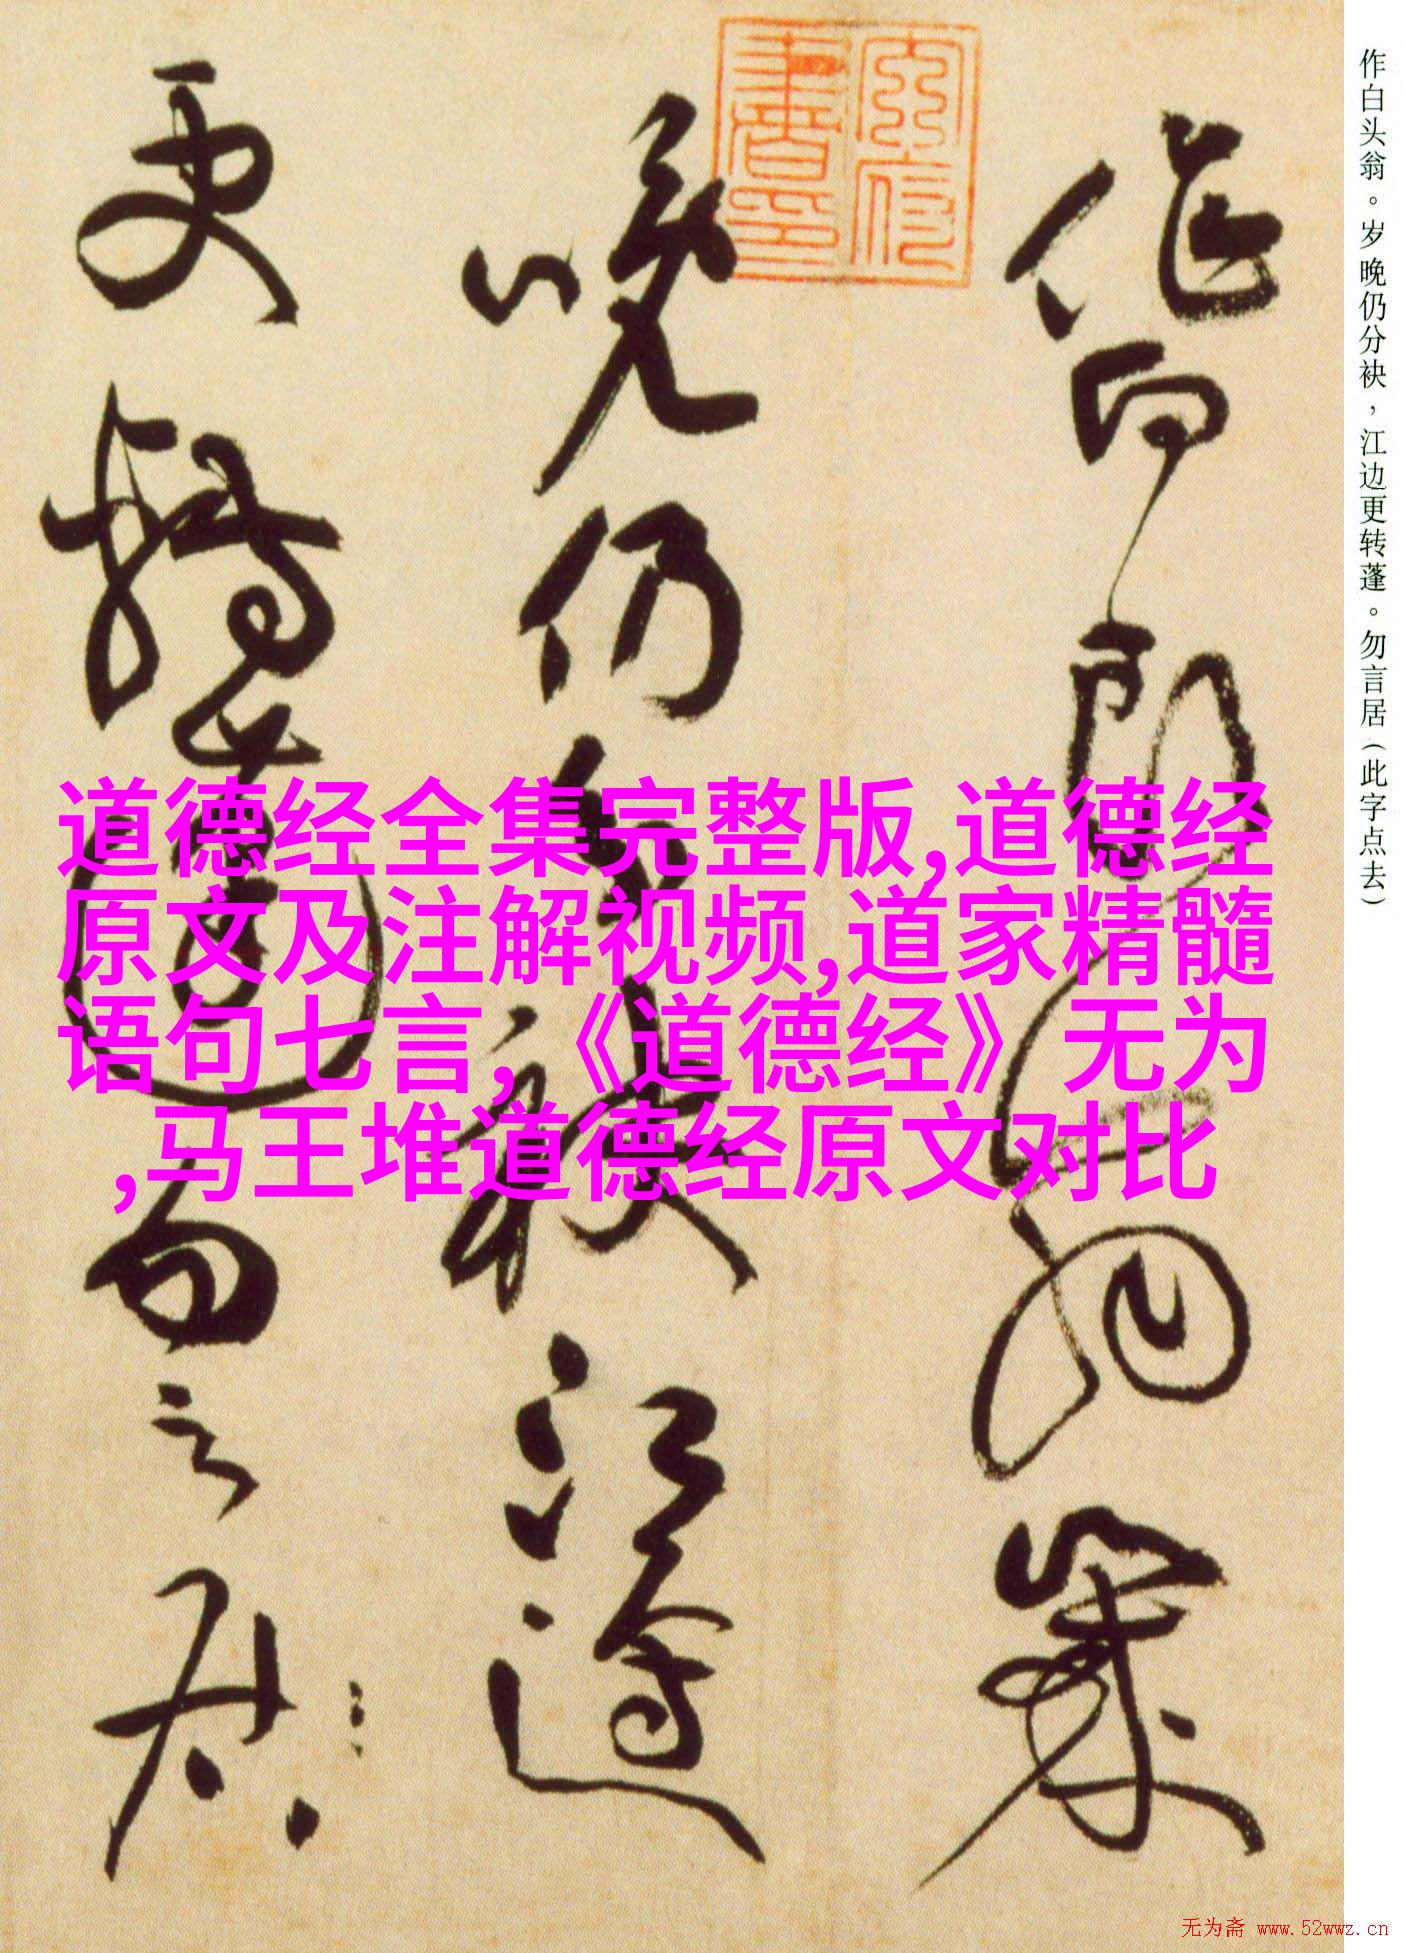 作白头翁。岁晚仍分袂，江边更转蓬。勿言居(此字点去)
作白頭翁歲
晚仍分袂江邊
更轉蓬勿言居
道德经全集完整版,道德经
原文及注解视频,道家精髓
语句七言,《道德经》无为
,马王堆道德经原文对比
无为斋 www.52wwz.cn